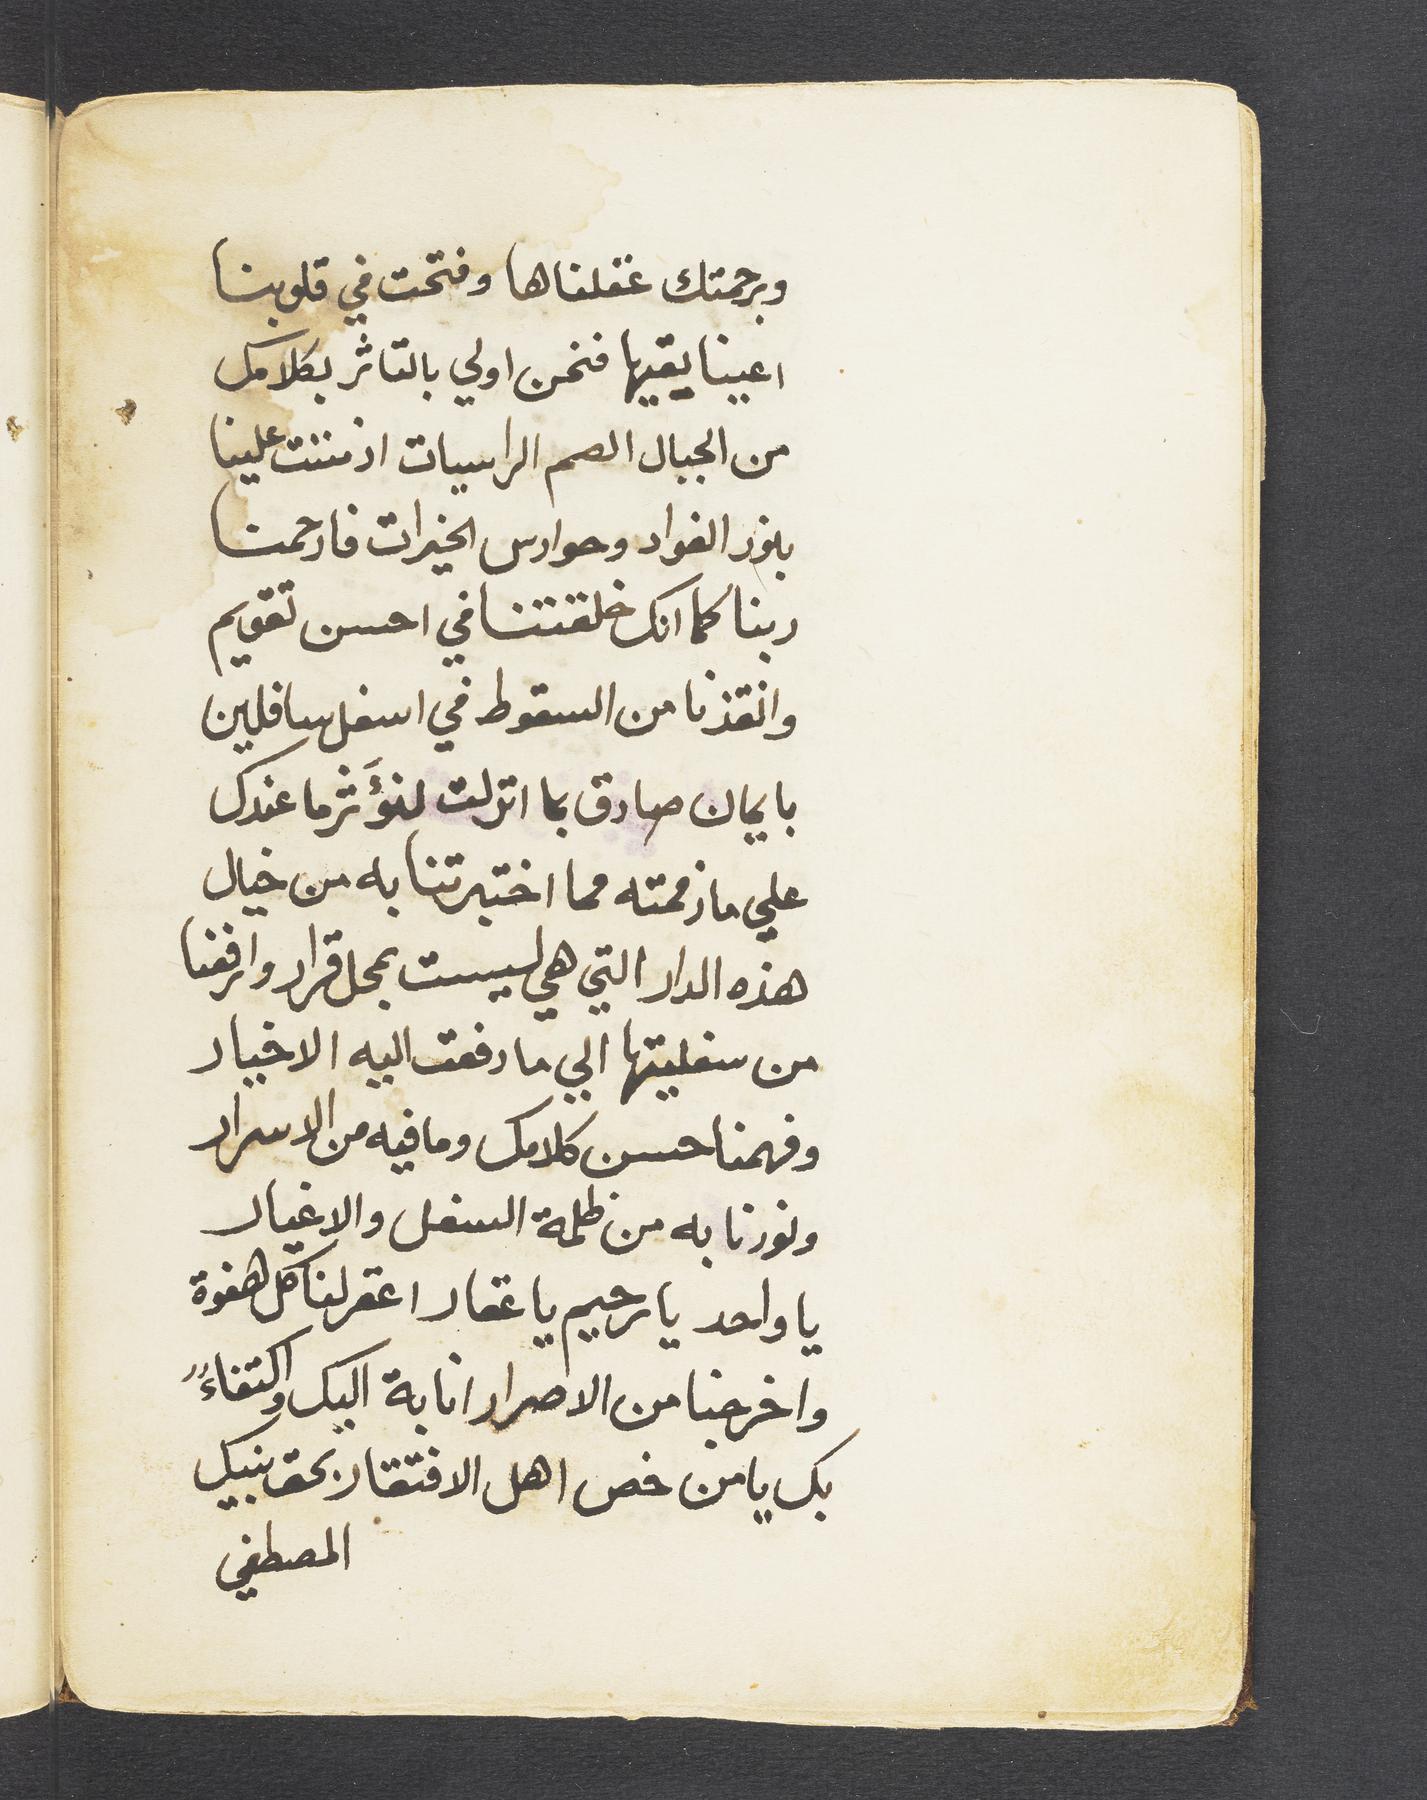 وبرحمتك غفلناها وفتحت في قلوبنا
اعينا يقيها فنحن اولي بالتاثر بكلامك
من الجبال الصم الراسيات اذ مننت علينا
بنور الفواد وحوارس الخيرات فارحمنا
ربنا كما انك خلقتنا في احسن تقويم
وانقذنا من السقوط في اسفل سافلين
بايمان صادق بما انزلت لنؤثر ما عندك
علي ما ذممته مما اختبرتنا به من خيال
هذه الدار التي هي ليست بمحل قرار وارفعنا
من سفليتها الي ما رفعت اليه الاخيار
وفهمنا حسن كلامك وما فيه من الاسرار
ونورنا به من ظلمة السفل والاغيار
يا واحد يا رحيم يا غفار اغفر لنا كل هفوة
واخرجنا من الاصرار انابة اليك واكتفاءً
بك يا من خص اهل الافتقار بحق نبيك
المصطفي